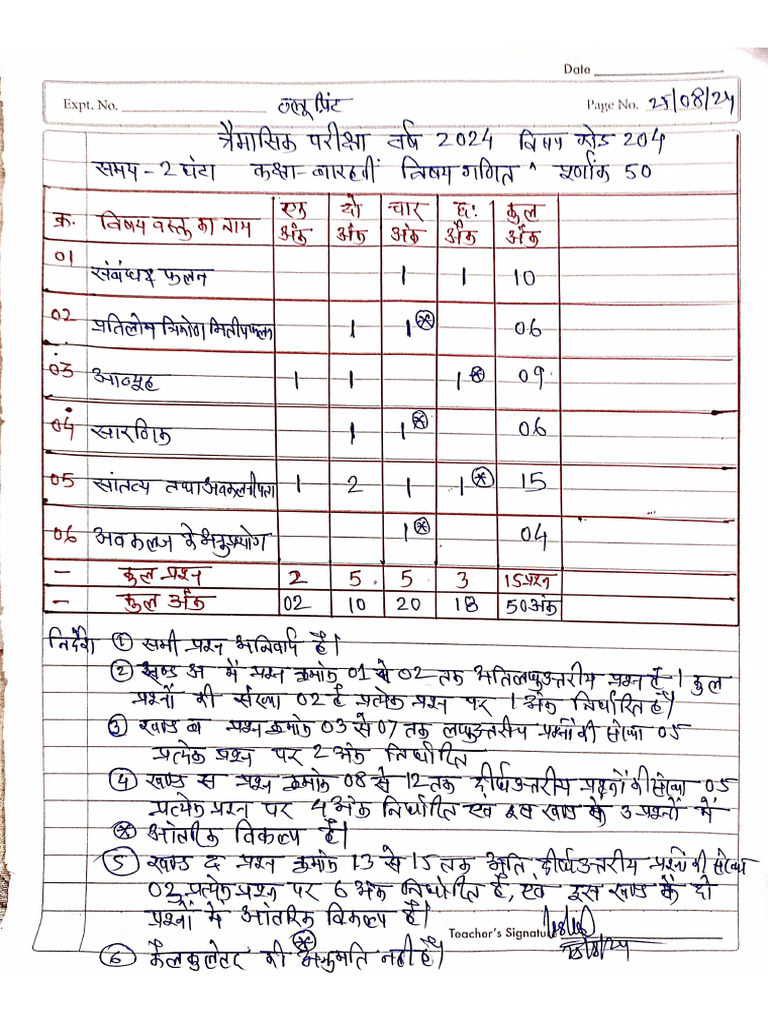 Date
Expt. No. ब्लू प्रिंट Page No. 25/08/24
त्रैमासिक परीक्षा वर्ष 2024 विषय कोड 204
समय - 2 घंटा कक्षा - बारहवीं विषय गणित पूर्णांक 50
क्र. विषय वस्तु का नाम एक अंक दो अंक चार अंक छः अंक कुल अंक
01 संबंध एवं फलन 1 1 10
02 प्रतिलोम त्रिकोणमितीय फलन 1 1* 06
03 आव्यूह 1 1 1* 09
04 सारणिक 1 1* 06
05 सांतत्य तथा अवकलनीयता 1 2 1 1* 15
06 अवकलज के अनुप्रयोग 1* 04
- कुल प्रश्न 2 5 5 3 15 प्रश्न
- कुल अंक 02 10 20 18 50 अंक
निर्देश ① सभी प्रश्न अनिवार्य है।
② खण्ड अ में प्रश्न क्रमांक 01 से 02 तक अतिलघुउत्तरीय प्रश्न है। कुल
प्रश्नों की संख्या 02 है प्रत्येक प्रश्न पर 1 अंक निर्धारित है।
③ खण्ड ब प्रश्न क्रमांक 03 से 07 तक लघुउत्तरीय प्रश्नों की संख्या 05
प्रत्येक प्रश्न पर 2 अंक निर्धारित
④ खण्ड स प्रश्न क्रमांक 08 से 12 तक दीर्घउत्तरीय प्रश्नों की संख्या 05
प्रत्येक प्रश्न पर 4 अंक निर्धारित एवं इस खण्ड के 3 प्रश्नों में
* आंतरिक विकल्प है।
⑤ खण्ड द प्रश्न क्रमांक 13 से 15 तक अति दीर्घउत्तरीय प्रश्नों की संख्या
03 प्रत्येक प्रश्न पर 6 अंक निर्धारित है, एवं इस खण्ड के दो
प्रश्नों में आंतरिक विकल्प है।
Teacher's Signature
⑥ कैलकुलेटर की अनुमति नहीं है। 25/8/24